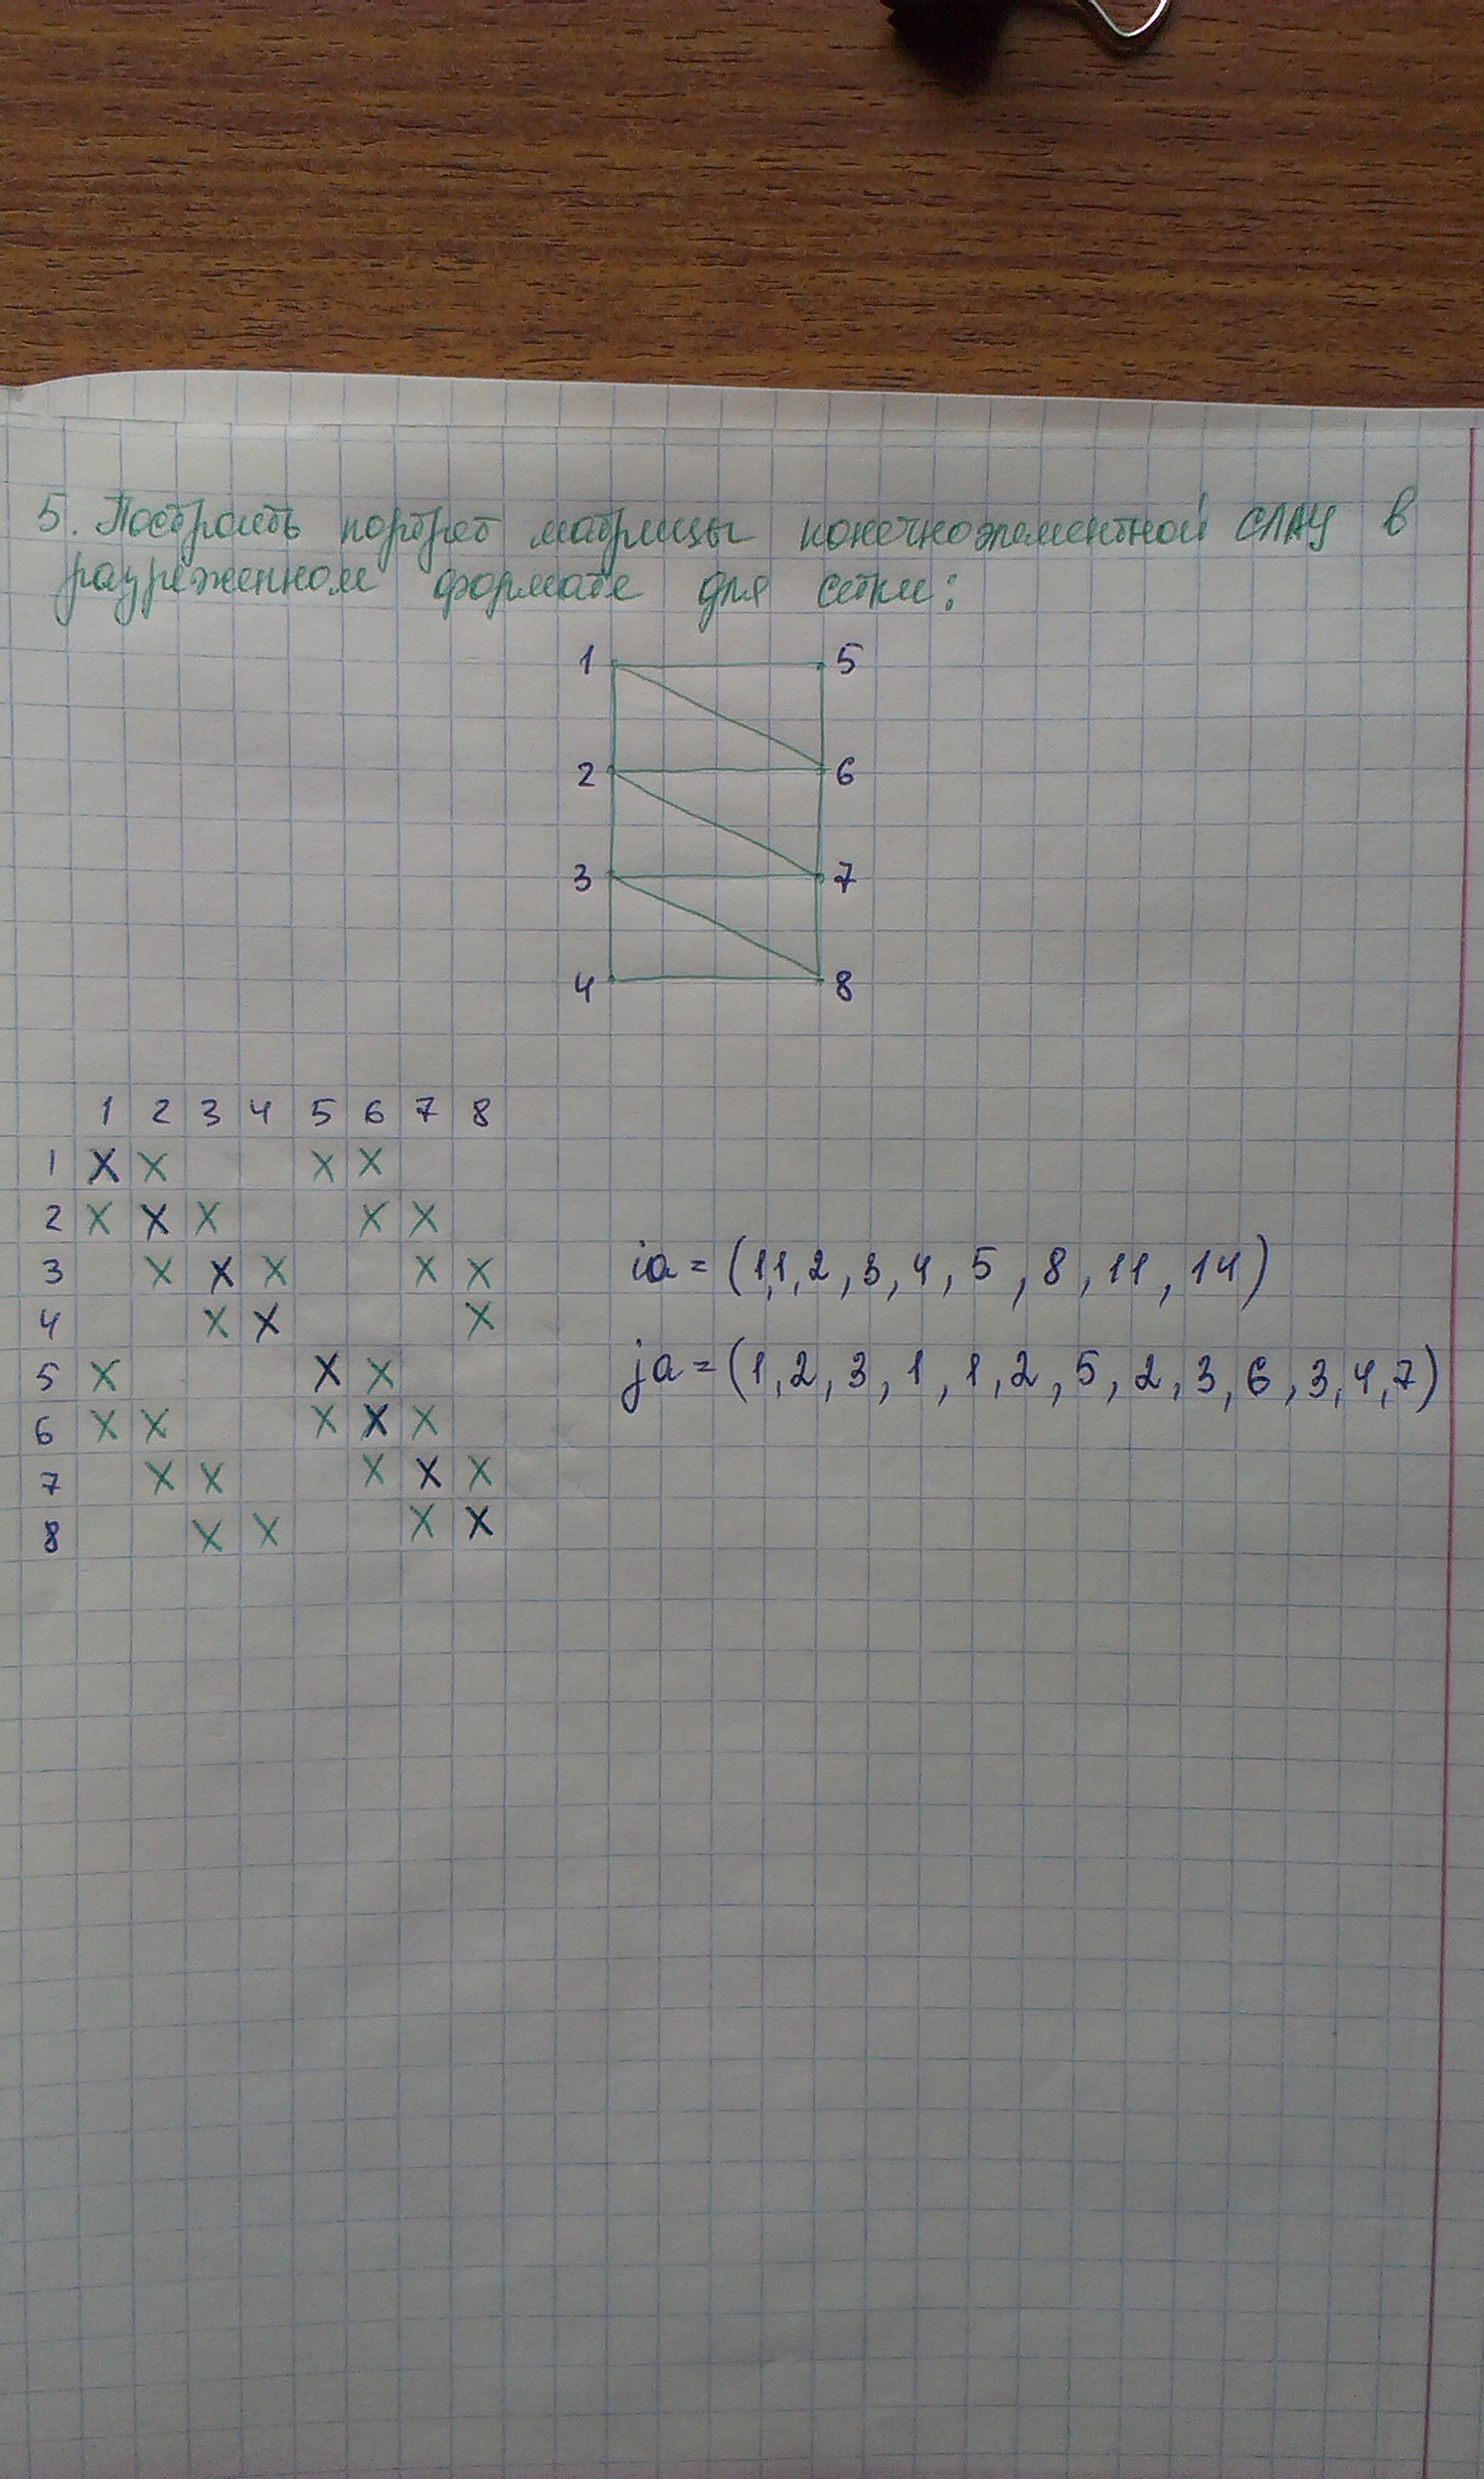 5. Построить портрет матрицы конечноэлементной СЛАУ в
разреженном формате для сетки:
1 5
2 6
3 7
4 8
1 2 3 4 5 6 7 8
1 X X X X
2 X X X X X
3 X X X X X
4 X X X
5 X X X
6 X X X X X
7 X X X X X
8 X X X X
ia = (1,1,2,3,4,5,8,11,14)
ja = (1,2,3,1,1,2,5,2,3,6,3,4,7)